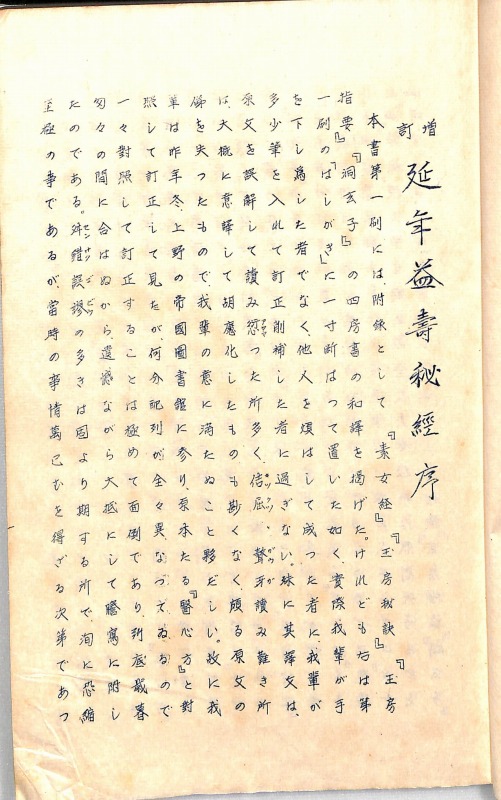 増訂 延年益壽秘經序
本書第一刷には、附録として『素女經』『玉房秘訣』『玉房
指要』『洞玄子』の四房書の和譯を掲げた。けれども右は第
一刷の『はしがき』に一寸断はつて置いた如く、實際我輩が手
を下し爲した者でなく、他人を煩はして成つた者に、我輩が
多少筆を入れて訂正削補した者に過ぎない。殊に其譯文は、
原文を誤解して讀み愆つた所多く、佶屈聱牙讀み難き所
は、大概に意譯して胡麽化したものも尠くなく、頗る原文の
俤を失つたもので、我輩の意に満たぬこと夥だしい。故に我
輩は昨年冬、上野の帝國圖書館に参り、原本たる『醫心方』と對
照して訂正して見たが、何分配列が全々異なつてゐるので
一々對照して訂正することは極めて面倒であり、到底歳暮
匆々の間に合はぬから、遺憾ながら大抵にして謄寫に附し
たのである。舛錯誤謬の多きは固より期する所で、洵に恐縮
至極の事であるが、當時の事情萬已むを得ざる次第であつ